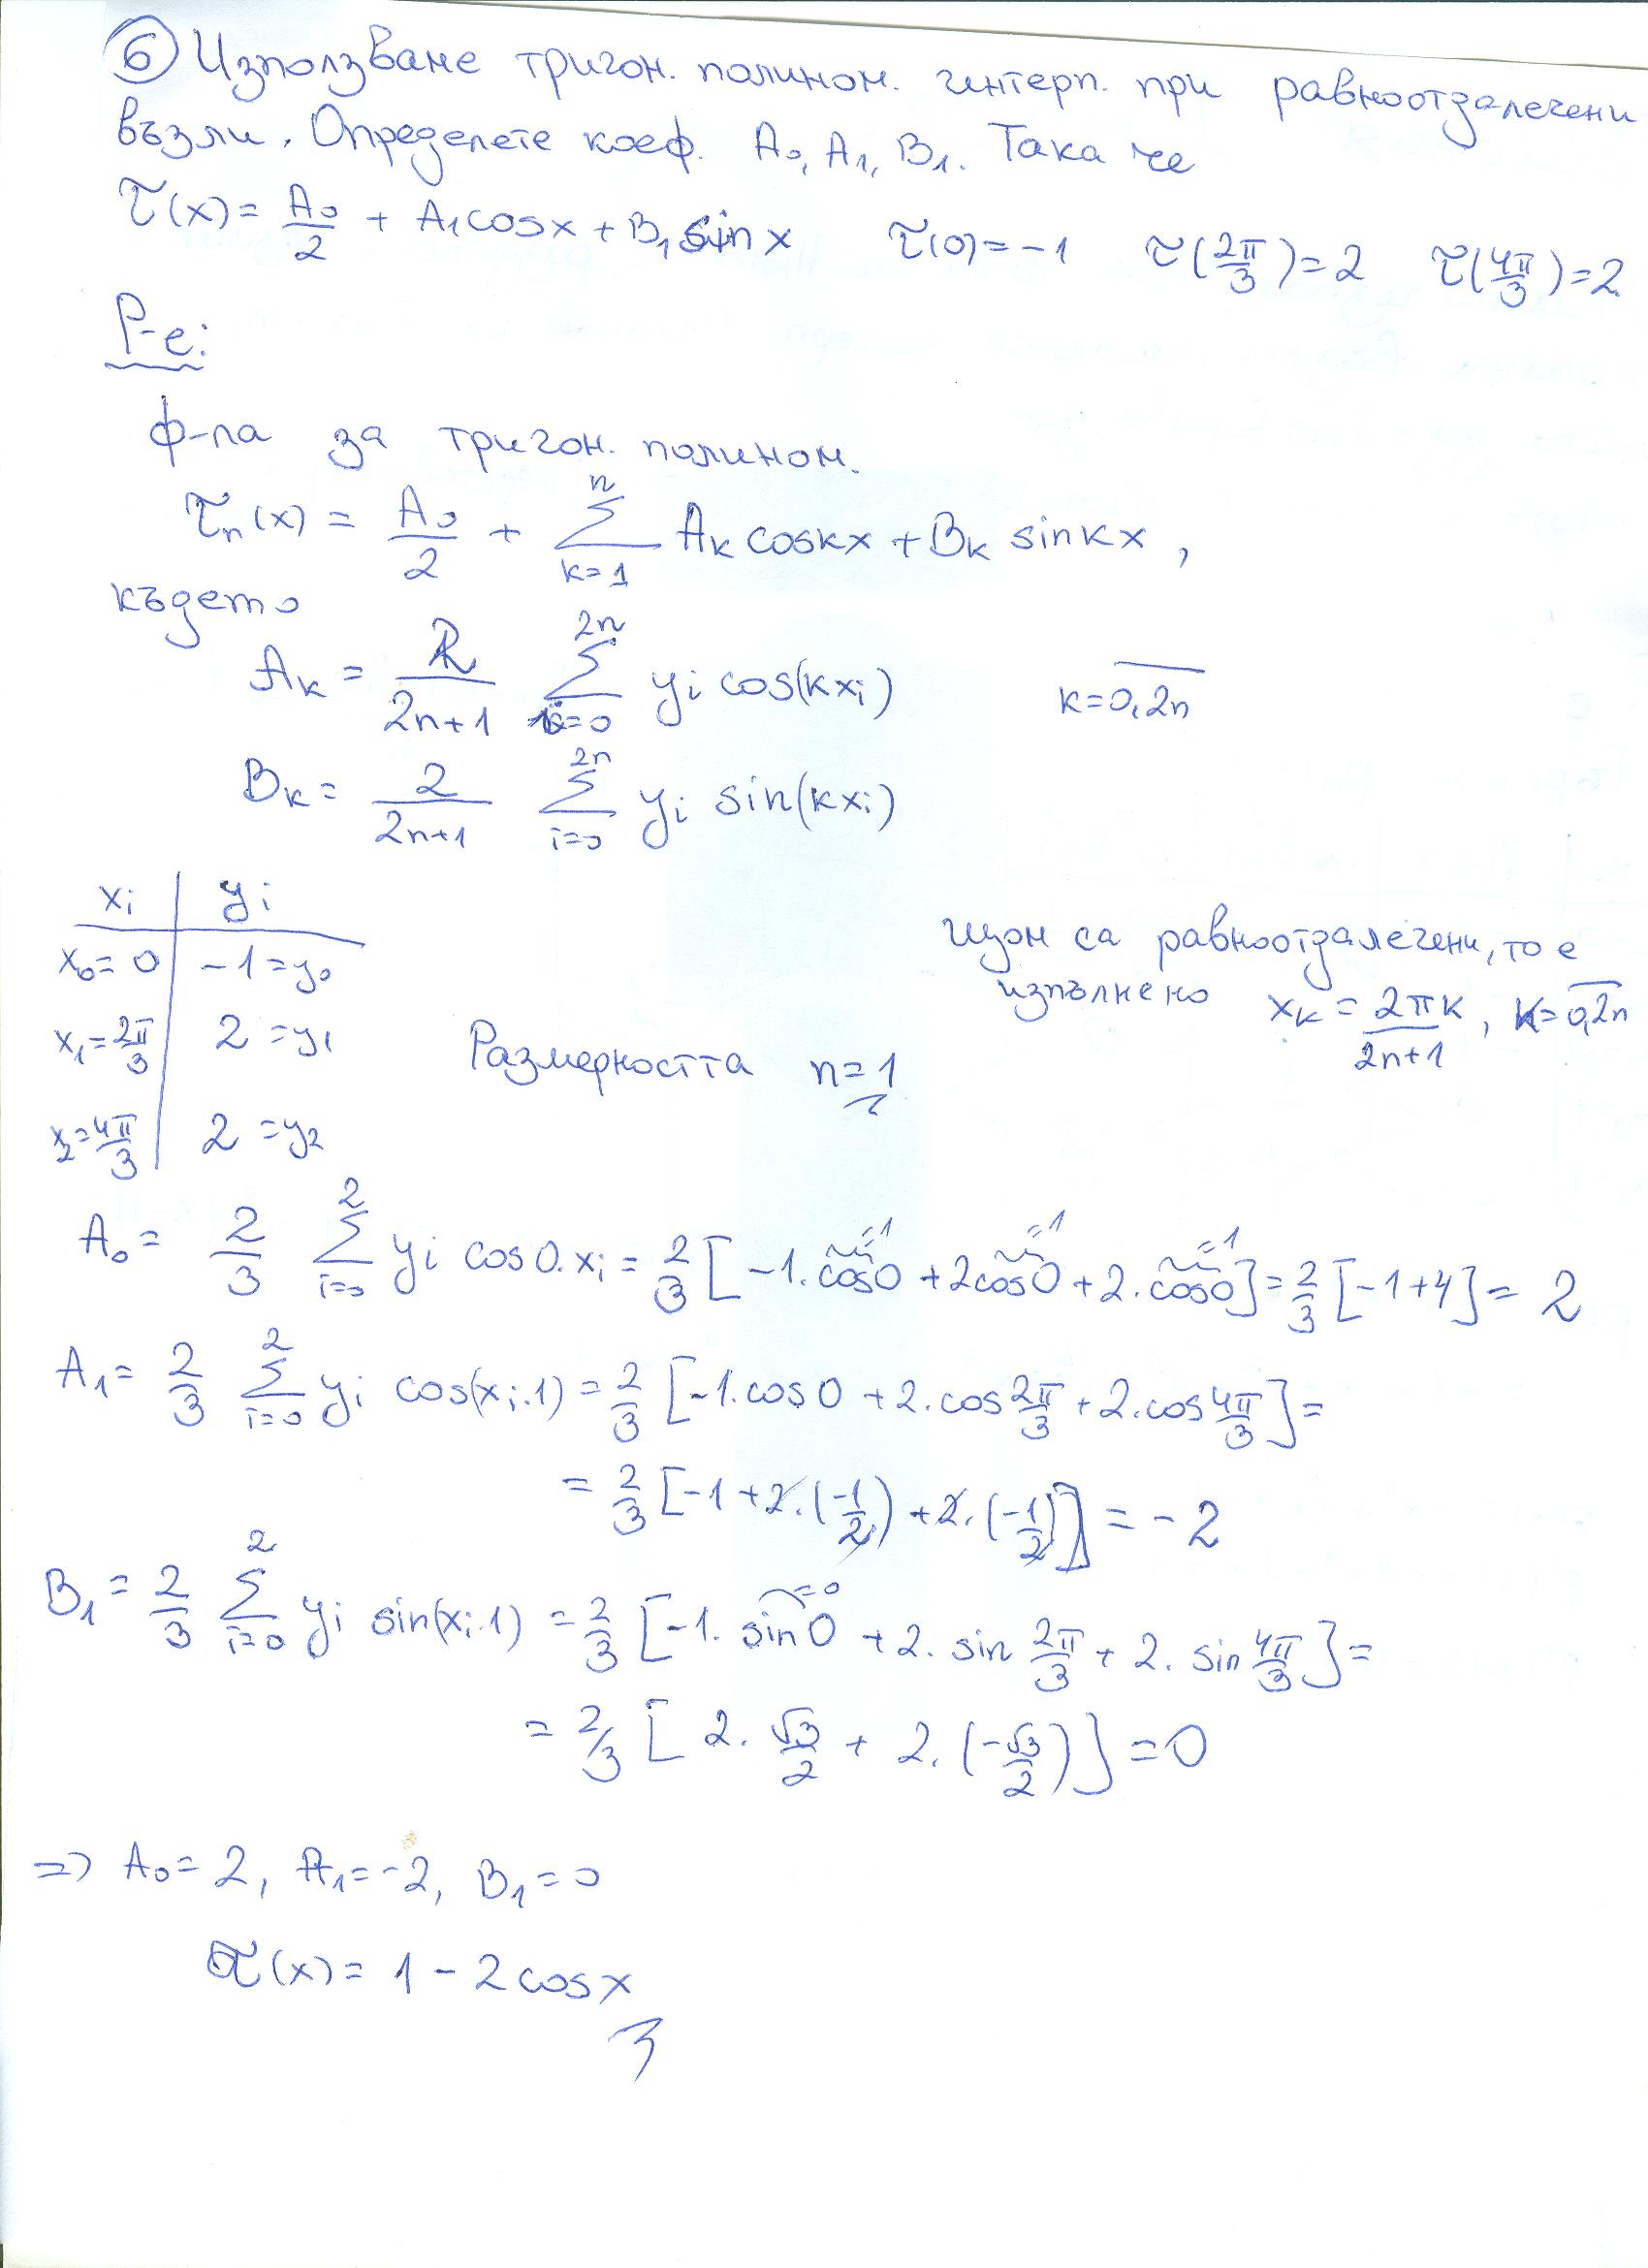 ⑥ Използване тригон. полином. интерп. при равноотдалечени
възли. Определете коеф. A₀, A₁, B₁. Така че
τ(x) = A₀/2 + A₁cosx + B₁ sin x τ(0) = -1 τ(2π/3) = 2 τ(4π/3) = 2
Р-е:
ф-ла за тригон. полином.
τₙ(x) = A₀/2 + Σ_{k=1}^{n} Aₖ coskx + Bₖ sinkx ,
където
Aₖ = 2/(2n+1) Σ_{i=0}^{2n} yᵢ cos(kxᵢ) k=0,2n
Bₖ = 2/(2n+1) Σ_{i=0}^{2n} yᵢ sin(kxᵢ)
xᵢ | yᵢ
x₀ = 0 | -1 = y₀
x₁ = 2π/3 | 2 = y₁
x₂ = 4π/3 | 2 = y₂
Размерността n = 1
Щом са равноотдалечени, то е
изпълнено xₖ = 2πk/(2n+1) , k=0,2n
A₀ = 2/3 Σ_{i=0}^{2} yᵢ cos0.xᵢ = 2/3 [-1.cos0 + 2cos0 + 2.cos0] = 2/3 [-1+4] = 2
=1 =1 =1
A₁ = 2/3 Σ_{i=0}^{2} yᵢ cos(xᵢ.1) = 2/3 [-1.cos0 + 2.cos2π/3 + 2.cos4π/3] =
= 2/3 [-1 + 2.(-1/2) + 2.(-1/2)] = -2
B₁ = 2/3 Σ_{i=0}^{2} yᵢ sin(xᵢ.1) = 2/3 [-1. sin0 + 2. sin 2π/3 + 2. sin 4π/3] =
=0
= 2/3 [2. √3/2 + 2. (-√3/2)] = 0
=> A₀ = 2, A₁ = -2, B₁ = 0
τ(x) = 1 - 2cosx